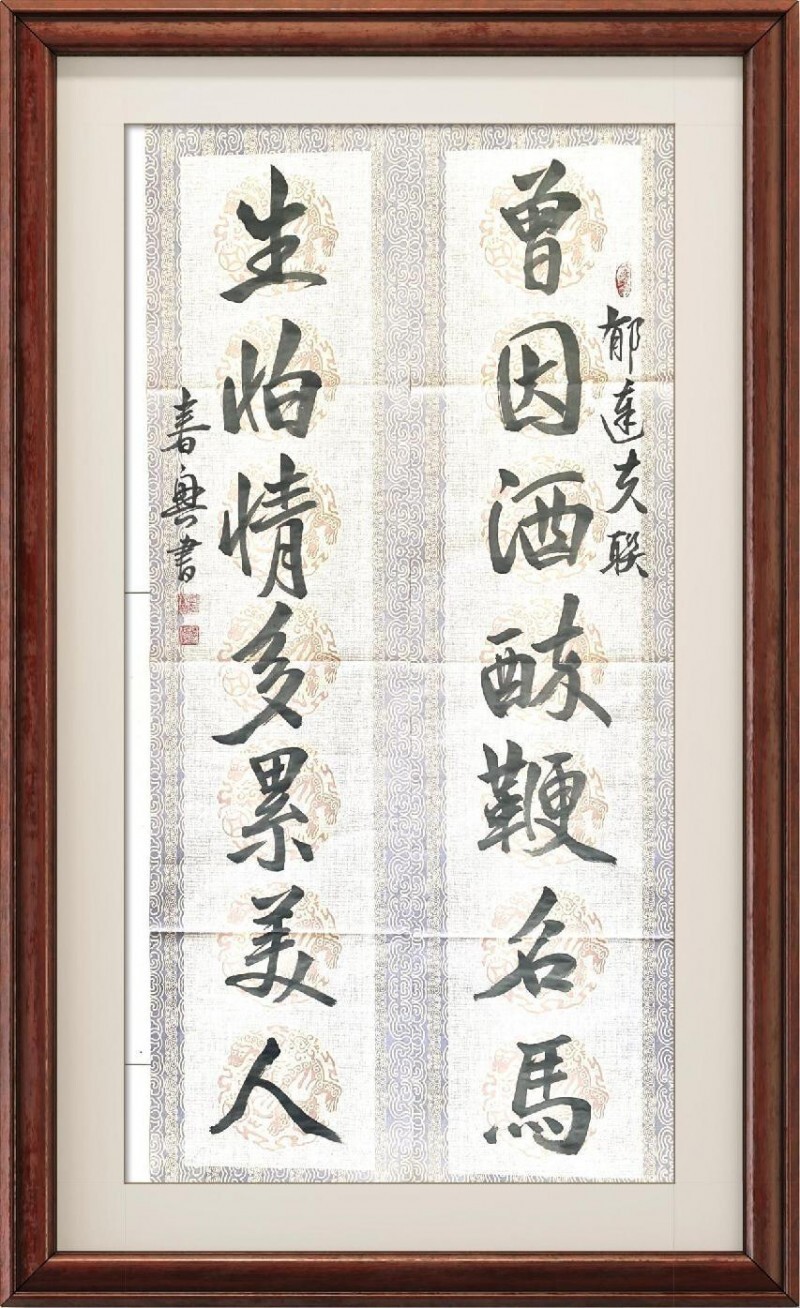 郁達夫联
曾因酒醉鞭名馬
生怕情多累美人
春興書